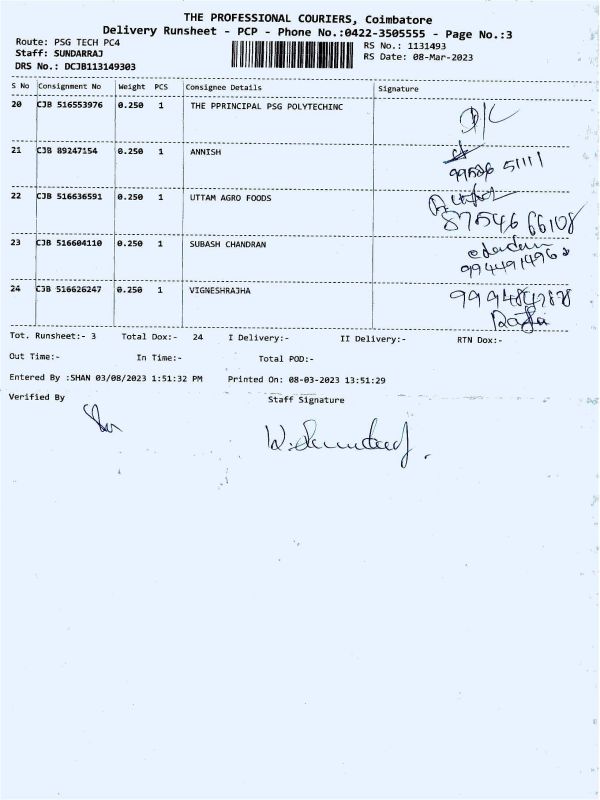 THE PROFESSIONAL COURIERS, Coimbatore
Delivery Runsheet - PCP - Phone No.:0422-3505555 - Page No.:3
Route: PSG TECH PC4 RS No.: 1131493
Staff: SUNDARRAJ RS Date: 08-Mar-2023
DRS No.: DCJB113149303
S No Consignment No Weight PCS Consignee Details Signature
20 CJB 516553976 0.250 1 THE PPRINCIPAL PSG POLYTECHINC
21 CJB 89247154 0.250 1 ANNISH
99586 51111
22 CJB 516636591 0.250 1 UTTAM AGRO FOODS
87546 66108
23 CJB 516604110 0.250 1 SUBASH CHANDRAN
9944914968
24 CJB 516626247 0.250 1 VIGNESHRAJHA
Tot. Runsheet:- 3 Total Dox:- 24 I Delivery:- II Delivery:- RTN Dox:-
Out Time:- In Time:- Total POD:-
Entered By :SHAN 03/08/2023 1:51:32 PM Printed On: 08-03-2023 13:51:29
Verified By Staff Signature